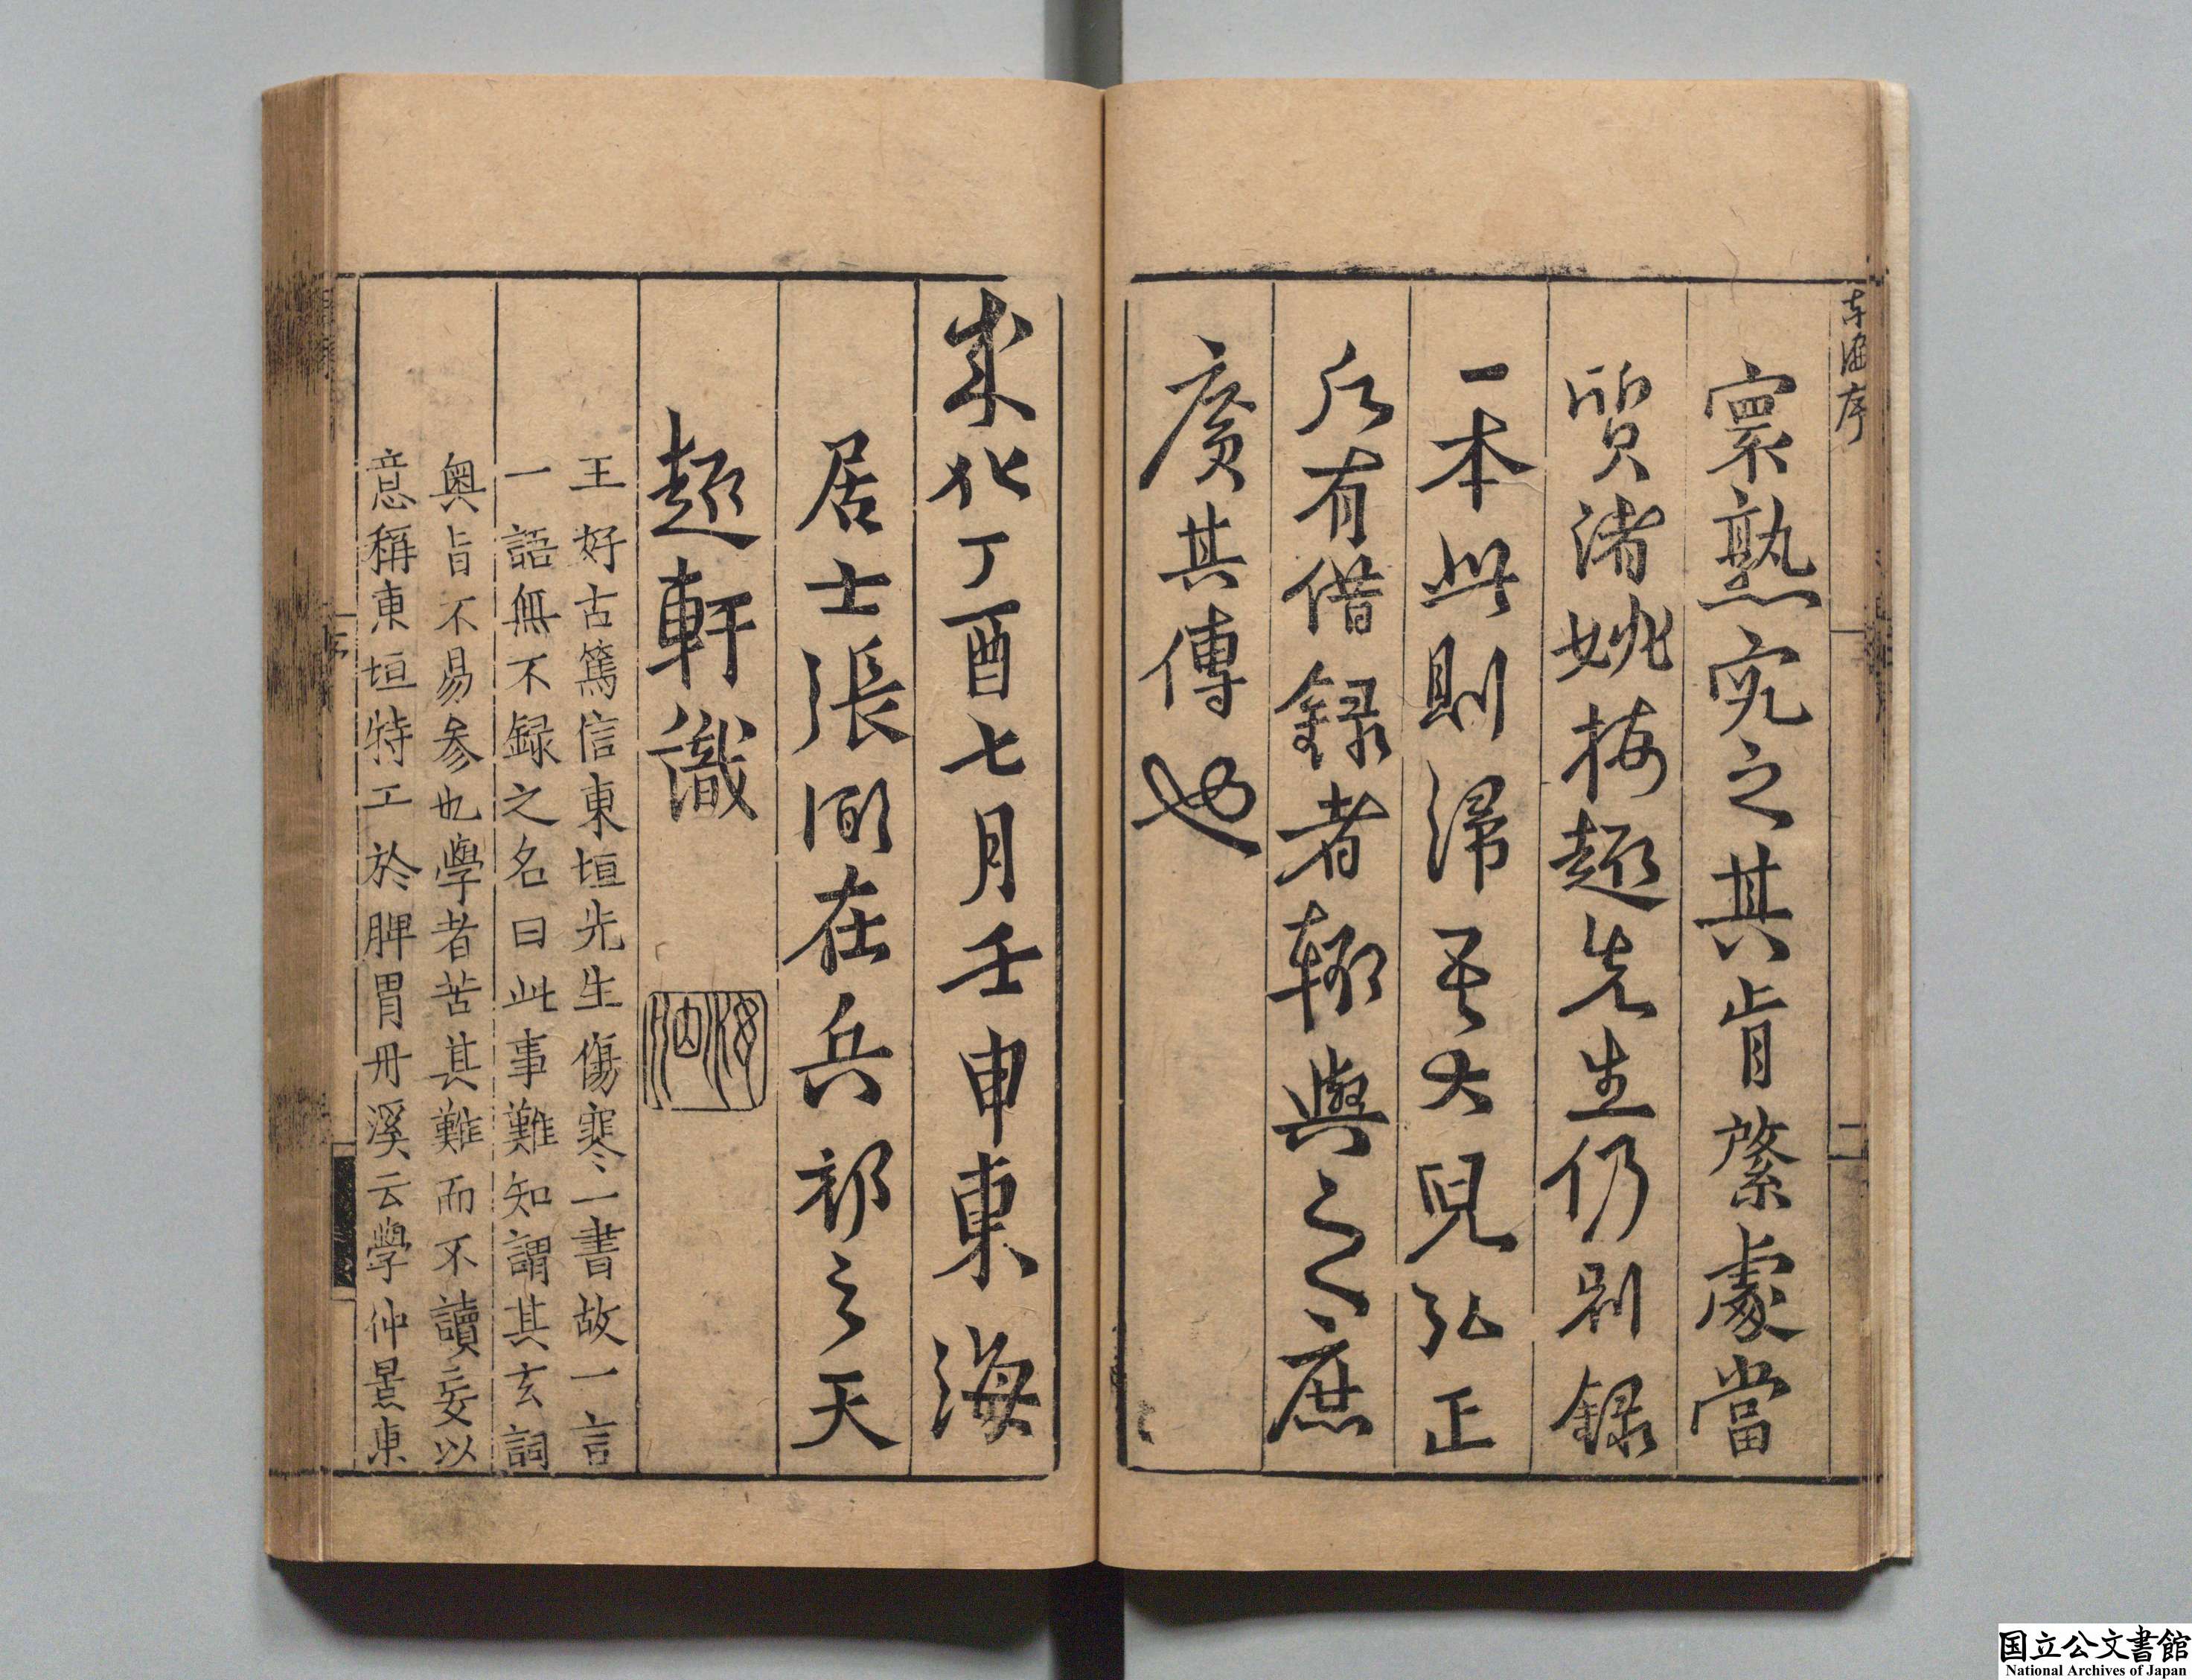 東海序
二
寰熟究之其肯綮處當
質諸姚梅趣先生仍別錄
一本此則歸吾大兒弘正
凡有借録者輙與之庶
廣其傳也
成化丁酉七月壬申東海
居士張㢸在兵部之天
趣軒識
王好古篤信東垣先生傷寒一書故一言
一語無不録之名曰此事難知謂其玄詞
奥旨不易参也學者苦其難而不讀妄以
意稱東垣特工於脾胃丹溪云學仲景東
国立公文書館
National Archives of Japan